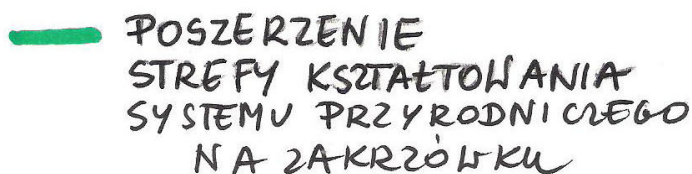 POSZERZENIE
STREFY KSZTAŁTOWANIA
SYSTEMU PRZYRODNICZEGO
NA ZAKRZÓWKU